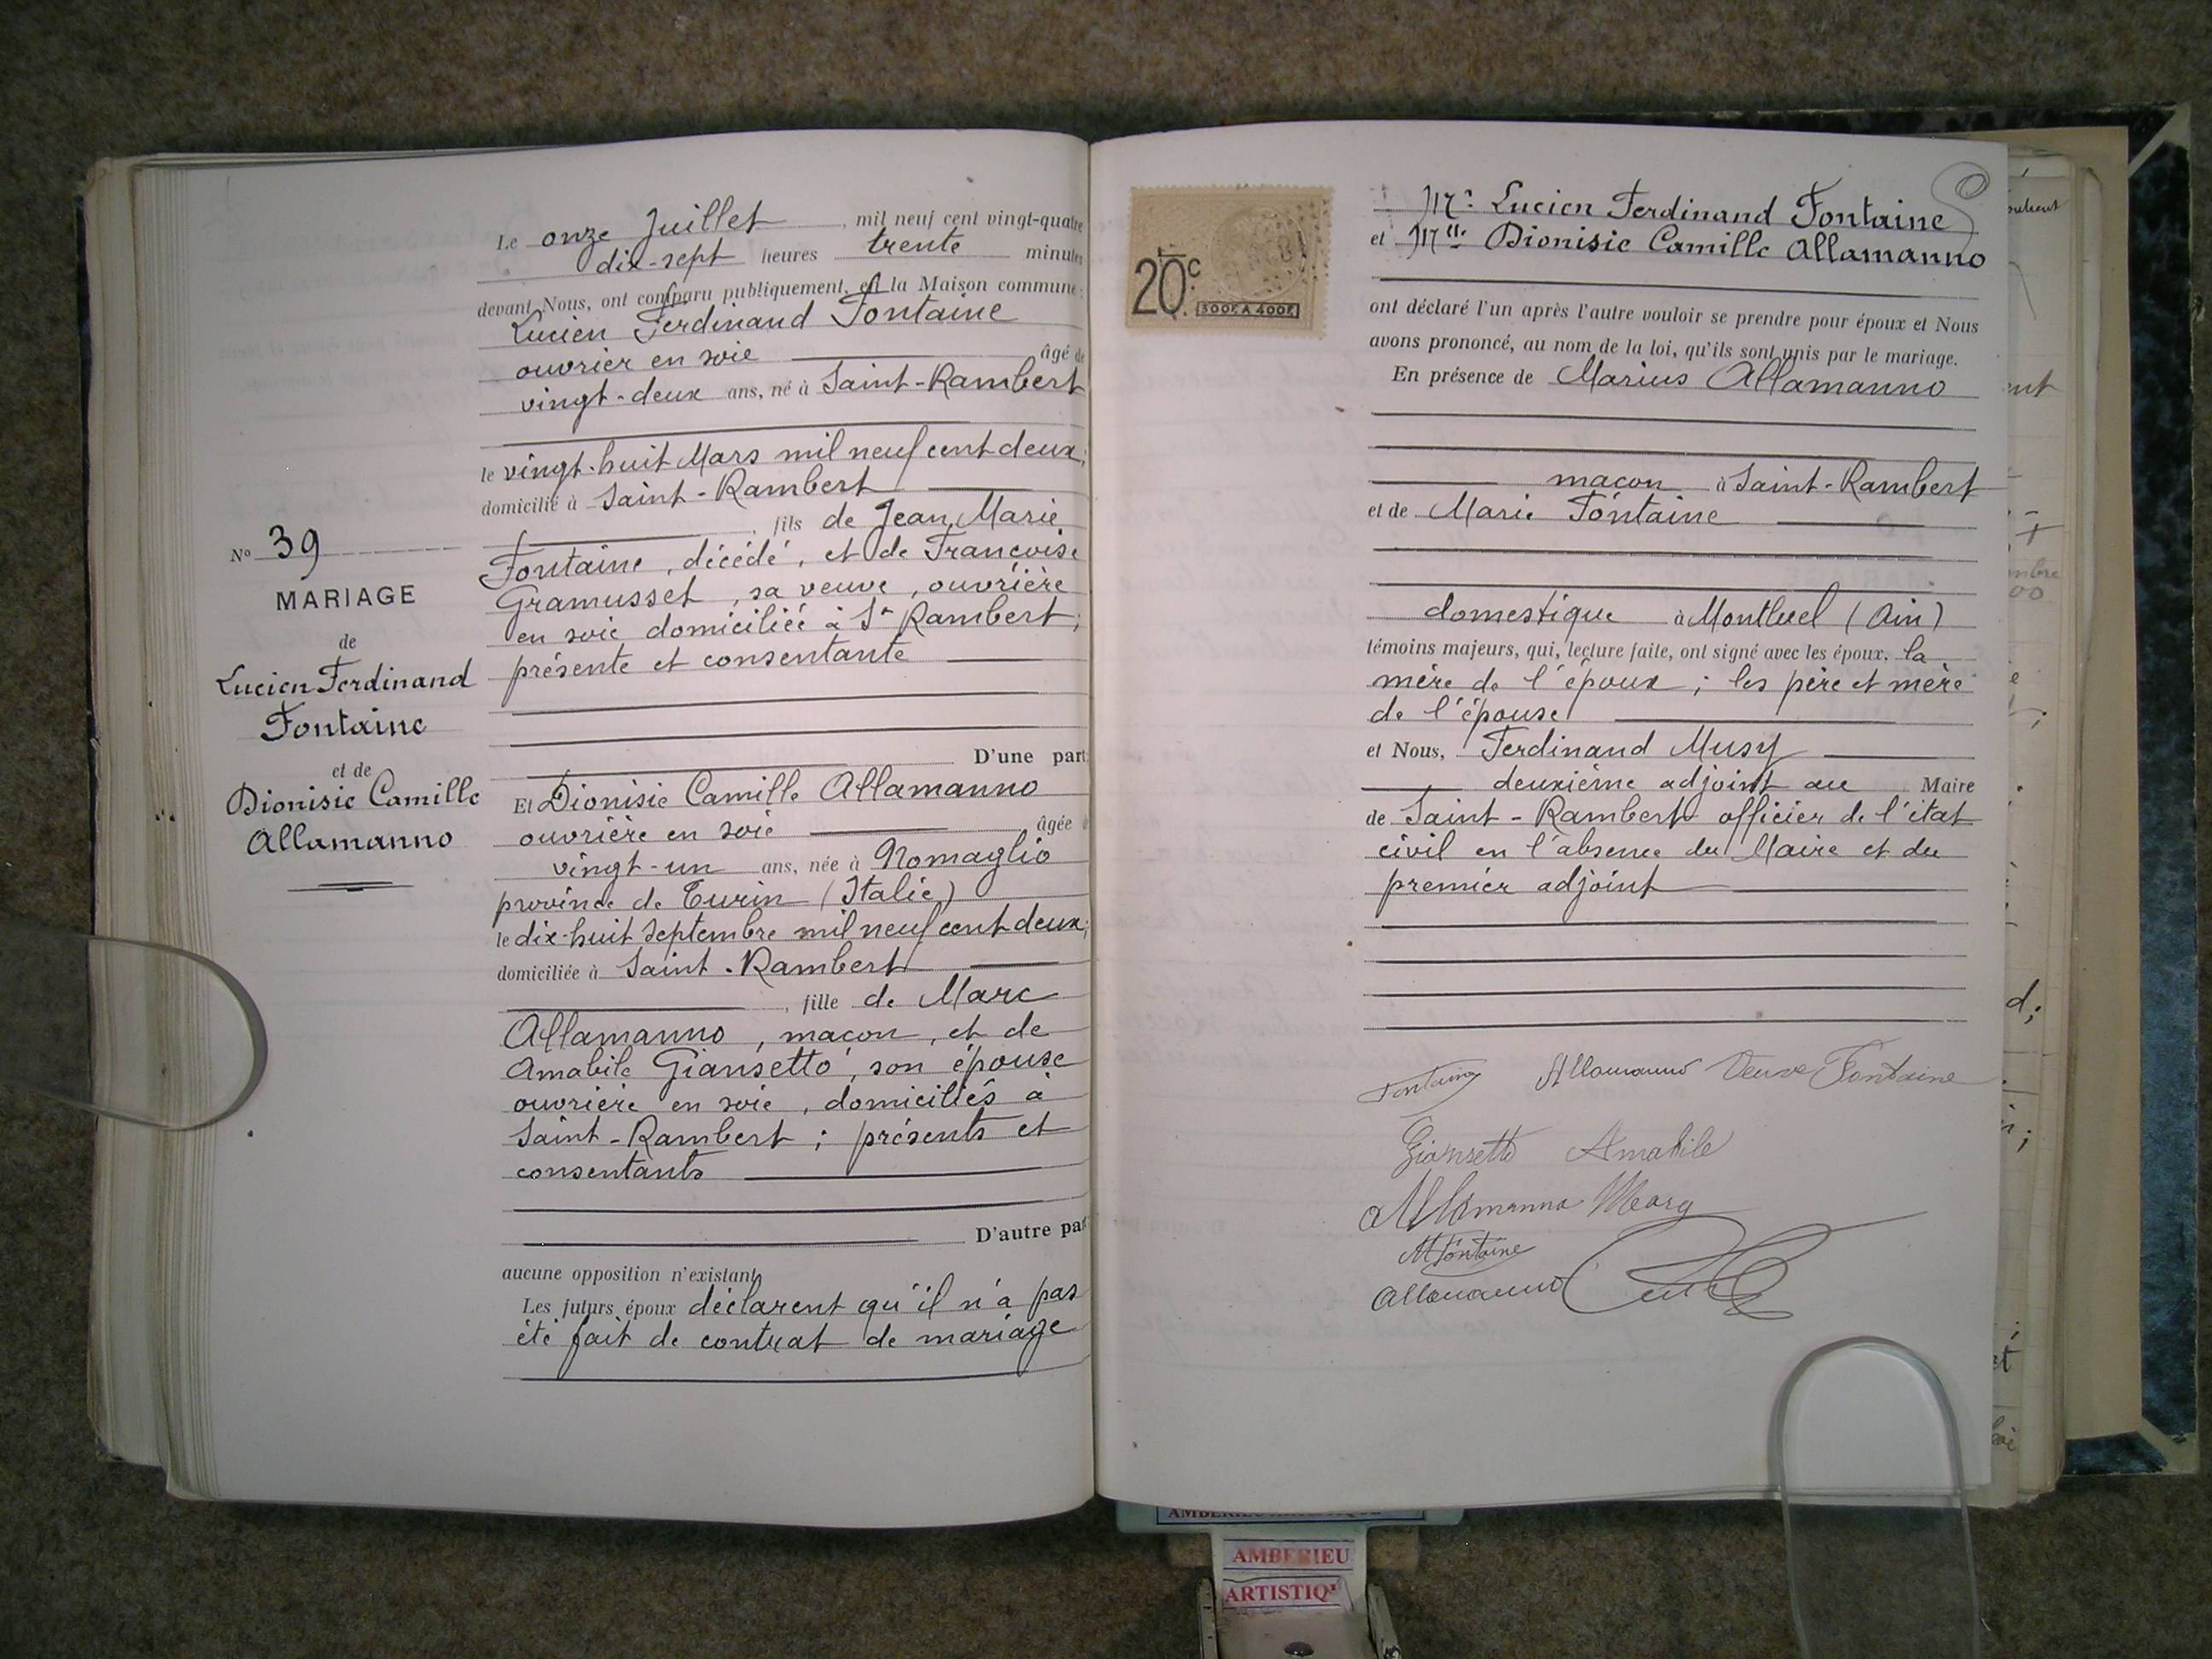 Nº 39
MARIAGE
de
Lucien Ferdinand
Fontaine
et de
Dionisie Camille
Allamanno
Le onze Juillet, mil neuf cent vingt-quatre
dix-sept heures trente minutes
devant Nous, ont comparu publiquement, en la Maison commune:
Lucien Ferdinand Fontaine
ouvrier en soie âgé de
vingt-deux ans, né à Saint-Rambert
le vingt-huit Mars mil neuf cent deux;
domicilié à Saint-Rambert
, fils de Jean Marie
Fontaine, décédé, et de Françoise
Gramusset, sa veuve, ouvrière
en soie domiciliée à St Rambert;
présente et consentante
D'une part
Et Dionisie Camille Allamanno
ouvrière en soie âgée
vingt-un ans, née à Nomaglio
province de Turin (Italie)
le dix-huit Septembre mil neuf cent deux;
domiciliée à Saint-Rambert
, fille de Marc
Allamanno, maçon, et de
Amabile Giansetto, son épouse
ouvrière en soie, domiciliés à
Saint-Rambert; présents et
consentants
D'autre par
aucune opposition n'existant
Les futurs époux déclarent qu'il n'a pas
été fait de contrat de mariage
20c
300F. A 400F.
Mr Lucien Ferdinand Fontaine
et Mlle Dionisie Camille Allamanno
ont déclaré l'un après l'autre vouloir se prendre pour époux et Nous
avons prononcé, au nom de la loi, qu'ils sont unis par le mariage.
En présence de Marius Allamanno
maçon à Saint-Rambert
et de Marie Fontaine
domestique à Montluel (Ain)
témoins majeurs, qui, lecture faite, ont signé avec les époux. la
mère de l'époux; les père et mère
de l'épouse
et Nous, Ferdinand Musy
deuxième adjoint au Maire
de Saint-Rambert officier de l'état
civil en l'absence du Maire et du
premier adjoint
Fontaine Allamanno Veuve Fontaine
Giansetto Amabile
Allamanno Marc
M Fontaine
Allamanno
AMBERIEU
ARTISTIQ